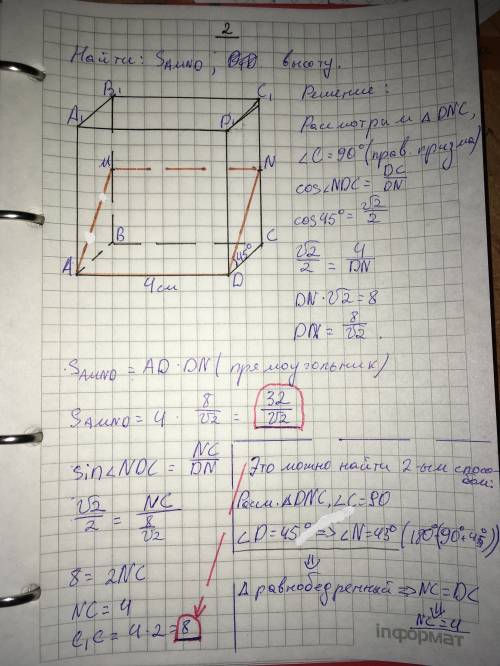 2
Найти: SAMND; высоту.
Решение:
Рассмотрим △DNC,
∠C=90°(прав. призма)
cos∠NDC= DC/DN
cos45°= √2/2
√2/2 = 4/DN
DN·√2=8
DN= 8/√2.
B₁
C₁
A₁
D₁
M
N
B
C
45°
A
D
4см
SAMND = AD·DN (прямоугольник)
SAMND = 4 · 8/√2 = 32/√2
sin∠NDC = NC/DN
√2/2 = NC/(8/√2)
8=2NC
NC=4
C₁C=4·2=8
Это можно найти 2-ым спосо-
бом:
Расм. △DNC, ∠C=90
∠D=45° ⇒ ∠N=45° (180°-(90°+45°))
⇓
△ равнобедренный ⇒ NC=DC
⇓
NC=4
informат